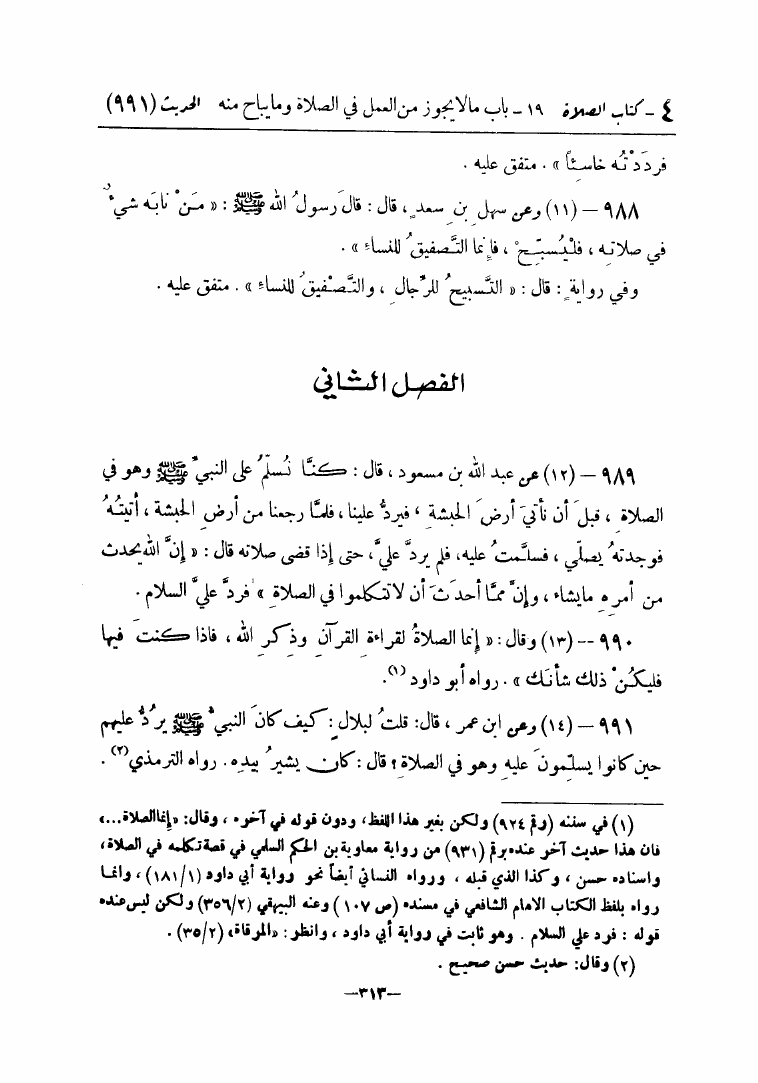 ٤ - كتاب الصلاة ١٩ - باب مالايجوز من العمل في الصلاة ومايباح منه الحديث (٩٩١)
فردَدْتُه خاسئاً » . متفق عليه .
٩٨٨ – (١١) وعن سهلِ بنِ سعدٍ ، قال : قالَ رسولُ الله ﷺ : « مَنْ نابَه شيءٌ
في صلاتِه ، فلْيُسبّحْ ، فإنما التَّصفيقُ للنساءِ » .
وفي روايةٍ : قال : « التَّسبيحُ للرِّجالِ ، والتَّصْفيقُ للنساءِ » . متفق عليه .
الفصل الثاني
٩٨٩ – (١٢) عن عبد الله بن مسعود ، قال : كنَّا نُسلّمُ على النبيِّ ﷺ وهو في
الصلاةِ ، قبلَ أن نأتيَ أرضَ الحبشةِ ، فيردُّ علينا ، فلمَّا رجعنا من أرضِ الحبشة ، أتيتُهُ
فوجدتهُ يصلّي ، فسلَّمتُ عليه، فلم يردَّ عليَّ، حتى إذا قضى صلاته قال : « إنَّ الله يحدث
من أمرِه مايشاء ، وإنَّ ممَّا أحدَثَ أن لاتتكلموا في الصلاةِ » فردَّ عليَّ السلام .
٩٩٠ -- (١٣) وقال : « إنما الصلاةُ لقراءةِ القرآنِ وذِكرِ اللهِ ، فاذا كنتَ فيها
فليكُنْ ذلك شأنَك » . رواه أبو داود (١).
٩٩١ – (١٤) وعن ابن عمر ، قال: قلتُ لبلالٍ : كيف كانَ النبيُّ ﷺ يرُدُّ عليهم
حين كانوا يسلّمونَ عليهِ وهو في الصلاةِ ؟ قال : كان يشيرُ بيدِه. رواه الترمذي(٢) .
(١) في سننه (رقم ٩٢٤) ولكن بغير هذا اللفظ، ودون قوله في آخره ، وقال: «إنماالصلاة...»
فان هذا حديث آخر عنده برقم (٩٣١) من رواية معاوية بن الحكم السلمي في قصة تكلمه في الصلاة،
واسناده حسن ، وكذا الذي قبله ، ورواه النسائي أيضاً نحو رواية أبي داود (١/ ١٨١) ، وانما
رواه بلفظ الكتاب الامام الشافعي في مسنده (ص ١٠٧) وعنه البيهقي (٣٥٦/٢) ولكن ليس عنده
قوله : فرد علي السلام . وهو ثابت في رواية أبي داود ، وانظر : «المرقاة» (٣٥/٢) .
(٢) وقال: حديث حسن صحيح .
—٣١٣—